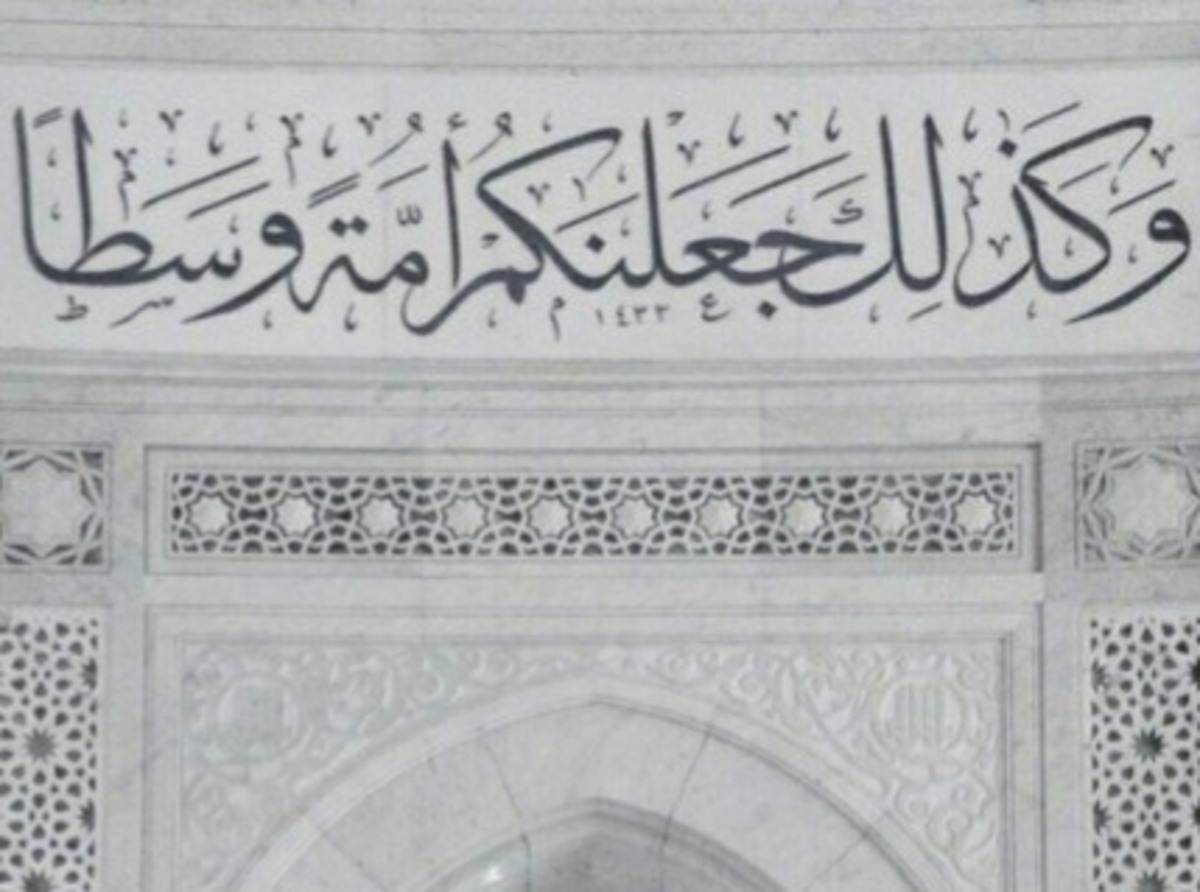 وَكَذَٰلِكَ جَعَلْنَٰكُمْ أُمَّةً وَسَطًا
١٤٣٢